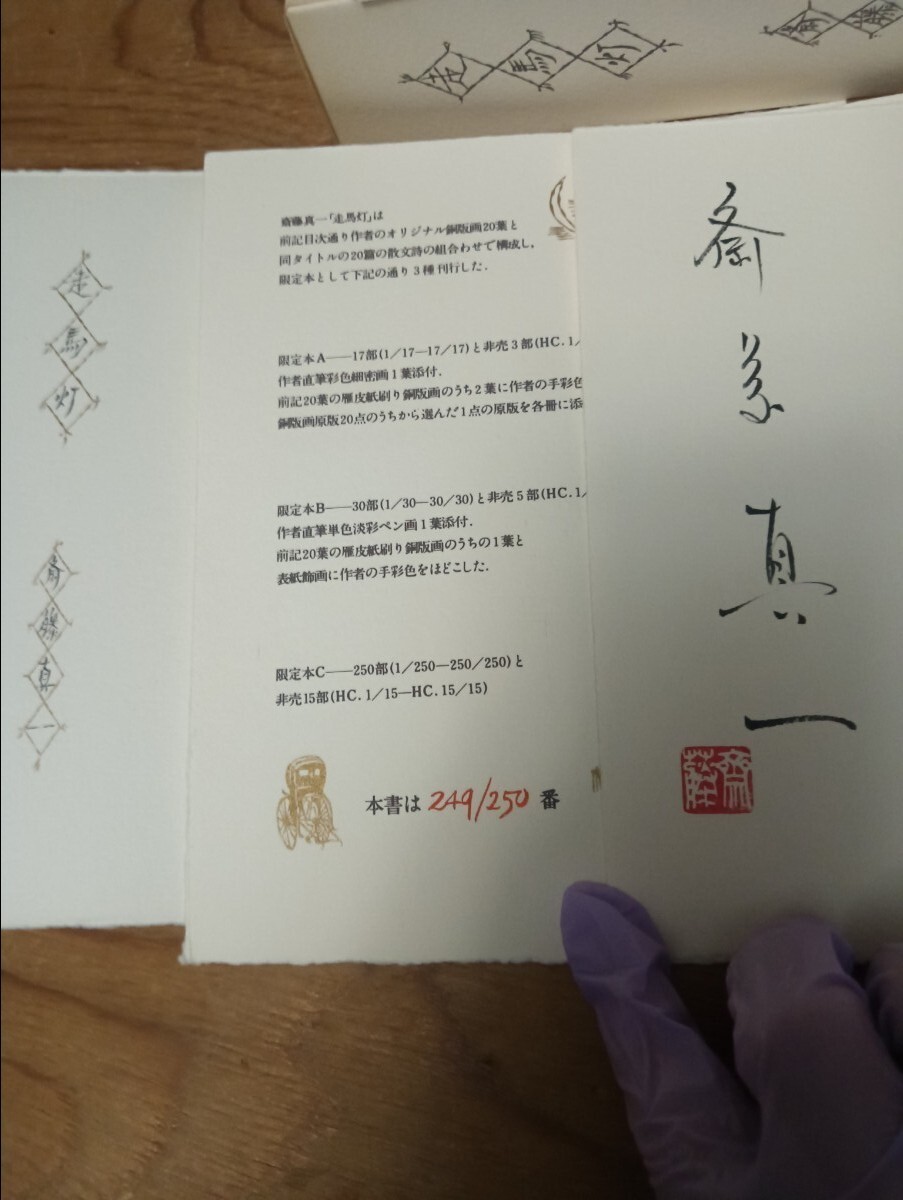 走馬灯
斎藤
走馬灯
斎藤真一
斎藤真一「走馬灯」は
前記目次通り作者のオリジナル銅版画20葉と
同タイトルの20篇の散文詩の組合わせで構成し，
限定本として下記の通り3種刊行した．
限定本A——17部(1／17—17／17)と非売3部(HC．1／
作者直筆彩色細密画1葉添付．
前記20葉の雁皮紙刷り銅版画のうち2葉に作者の手彩色
銅版画原版20点のうちから選んだ1点の原版を各冊に添
限定本B——30部(1／30—30／30)と非売5部(HC．1／
作者直筆単色淡彩ペン画1葉添付．
前記20葉の雁皮紙刷り銅版画のうちの1葉と
表紙飾画に作者の手彩色をほどこした．
限定本C——250部(1／250—250／250)と
非売15部(HC．1／15—HC．15／15)
本書は 249/250 番
斎藤真一
齋藤